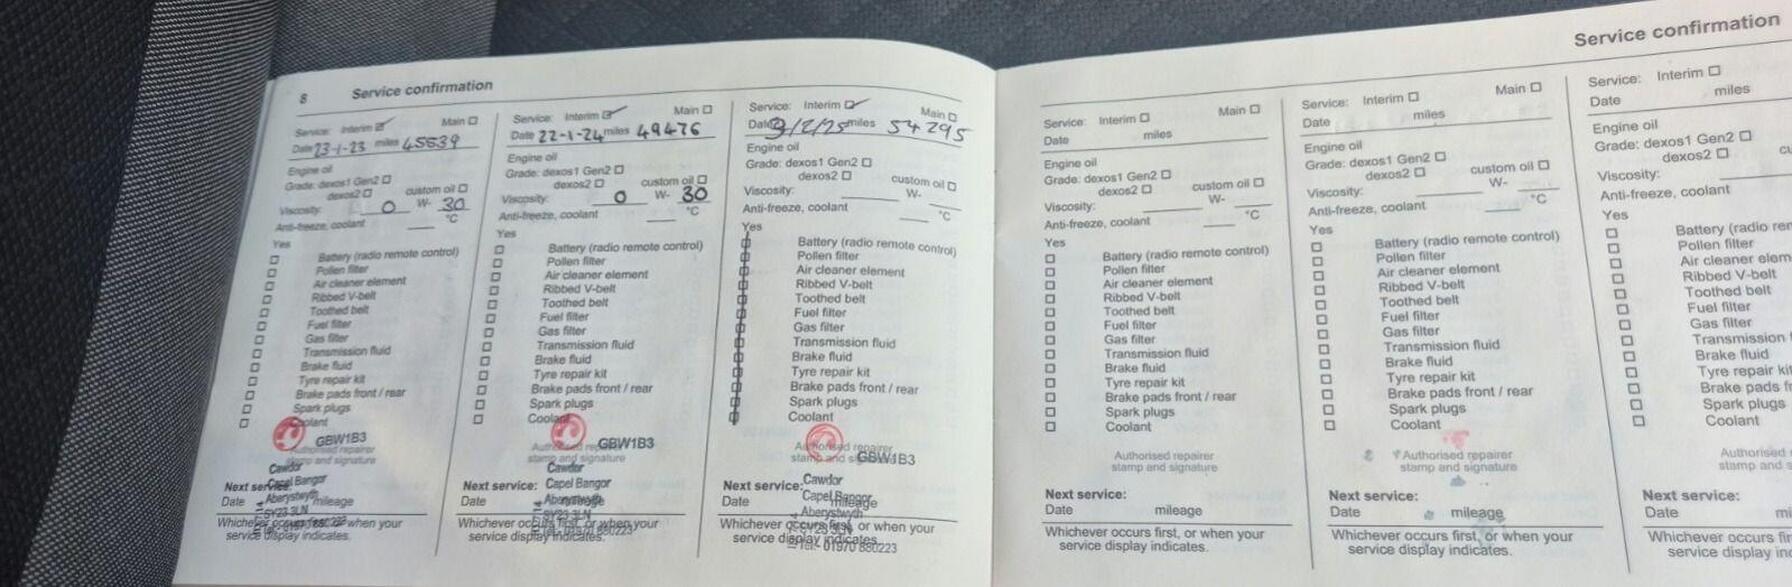 8 Service confirmation
Service: Interim ☑ Main ☐
Date 23-1-23 miles 45539
Engine oil
Grade: dexos1 Gen2 ☐
dexos2 ☐ custom oil ☐
Viscosity: 0 W- 30
Anti-freeze, coolant °C
Yes
☐ Battery (radio remote control)
☐ Pollen filter
☐ Air cleaner element
☐ Ribbed V-belt
☐ Toothed belt
☐ Fuel filter
☐ Gas filter
☐ Transmission fluid
☐ Brake fluid
☐ Tyre repair kit
☐ Brake pads front / rear
☐ Spark plugs
☐ Coolant
GBW1B3
Authorised repairer
stamp and signature
Cawdor
Capel Bangor
Aberystwyth
SY23 3LN
Next service:
Date mileage
Whichever occurs first, or when your
service display indicates.
Service: Interim ☑ Main ☐
Date 22-1-24 miles 49476
Engine oil
Grade: dexos1 Gen2 ☐
dexos2 ☐ custom oil ☐
Viscosity: 0 W- 30
Anti-freeze, coolant °C
Yes
☐ Battery (radio remote control)
☐ Pollen filter
☐ Air cleaner element
☐ Ribbed V-belt
☐ Toothed belt
☐ Fuel filter
☐ Gas filter
☐ Transmission fluid
☐ Brake fluid
☐ Tyre repair kit
☐ Brake pads front / rear
☐ Spark plugs
☐ Coolant
GBW1B3
Authorised repairer
stamp and signature
Cawdor
Capel Bangor
Aberystwyth
SY23 3LN
Tel: 01970 880223
Next service:
Date mileage
Whichever occurs first, or when your
service display indicates.
Service: Interim ☑ Main ☐
Date 3/2/25 miles 54295
Engine oil
Grade: dexos1 Gen2 ☐
dexos2 ☐ custom oil ☐
Viscosity: W-
Anti-freeze, coolant °C
Yes
☐ Battery (radio remote control)
☐ Pollen filter
☐ Air cleaner element
☐ Ribbed V-belt
☐ Toothed belt
☐ Fuel filter
☐ Gas filter
☐ Transmission fluid
☐ Brake fluid
☐ Tyre repair kit
☐ Brake pads front / rear
☐ Spark plugs
☐ Coolant
Authorised repairer
stamp and signature
GBW1B3
Cawdor
Capel Bangor
Aberystwyth
SY23 3LN
Tel: 01970 880223
Next service:
Date mileage
Whichever occurs first, or when your
service display indicates.
Service confirmation
Service: Interim ☐ Main ☐
Date miles
Engine oil
Grade: dexos1 Gen2 ☐
dexos2 ☐ custom oil ☐
Viscosity: W-
Anti-freeze, coolant °C
Yes
☐ Battery (radio remote control)
☐ Pollen filter
☐ Air cleaner element
☐ Ribbed V-belt
☐ Toothed belt
☐ Fuel filter
☐ Gas filter
☐ Transmission fluid
☐ Brake fluid
☐ Tyre repair kit
☐ Brake pads front / rear
☐ Spark plugs
☐ Coolant
Authorised repairer
stamp and signature
Next service:
Date mileage
Whichever occurs first, or when your
service display indicates.
Service: Interim ☐ Main ☐
Date miles
Engine oil
Grade: dexos1 Gen2 ☐
dexos2 ☐ custom oil ☐
Viscosity: W-
Anti-freeze, coolant °C
Yes
☐ Battery (radio remote control)
☐ Pollen filter
☐ Air cleaner element
☐ Ribbed V-belt
☐ Toothed belt
☐ Fuel filter
☐ Gas filter
☐ Transmission fluid
☐ Brake fluid
☐ Tyre repair kit
☐ Brake pads front / rear
☐ Spark plugs
☐ Coolant
Authorised repairer
stamp and signature
Next service:
Date mileage
Whichever occurs first, or when your
service display indicates.
Service: Interim ☐
Date miles
Engine oil
Grade: dexos1 Gen2 ☐
dexos2 ☐ cu
Viscosity:
Anti-freeze, coolant
Yes
☐ Battery (radio rem
☐ Pollen filter
☐ Air cleaner elem
☐ Ribbed V-belt
☐ Toothed belt
☐ Fuel filter
☐ Gas filter
☐ Transmission
☐ Brake fluid
☐ Tyre repair kit
☐ Brake pads fr
☐ Spark plugs
☐ Coolant
Authorised
stamp and s
Next service:
Date mi
Whichever occurs fir
service display ind